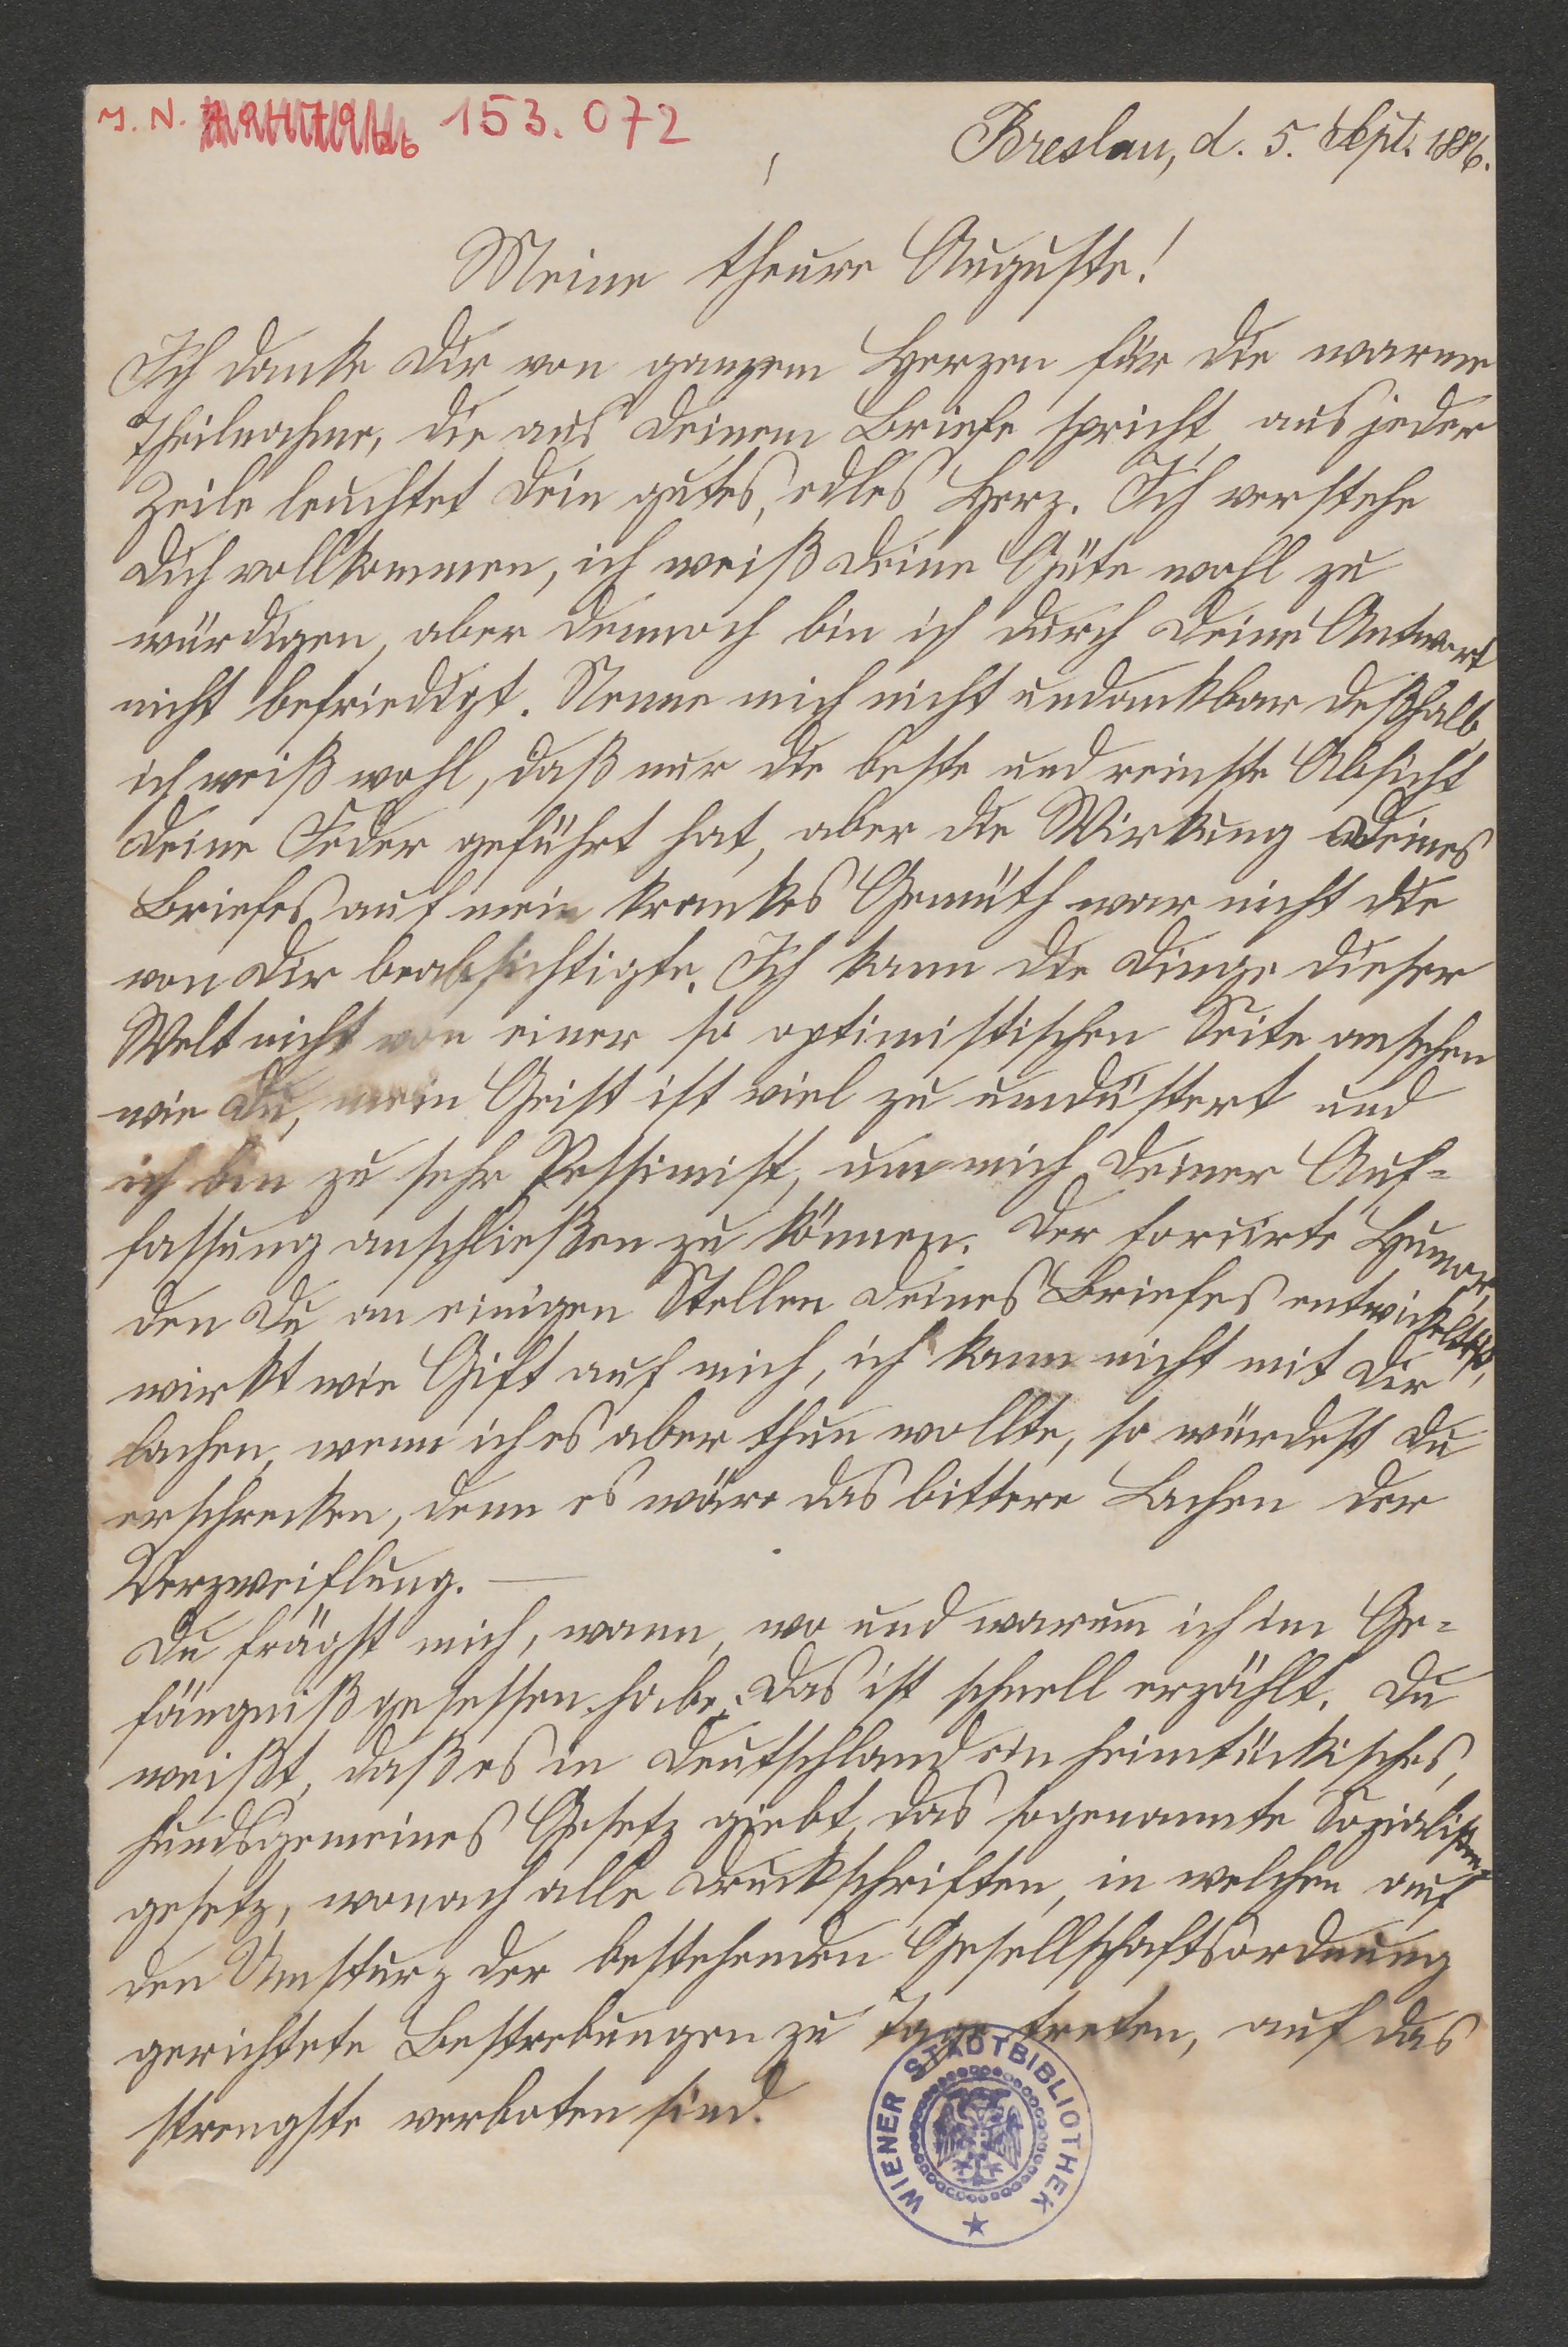 J. N. 153.072
Breslau, d. 5. Sept. 1886.
Meine theure Auguste!
Ich danke Dir von ganzem Herzen für die warme
Theilnahme, die aus Deinem Briefe spricht, aus jeder
Zeile leuchtet Dein gutes, edles Herz. Ich verstehe
Dich vollkommen, ich weiß Deine Güte wohl zu
würdigen, aber dennoch bin ich durch Deine Antwort
nicht befriedigt. Nenne mich nicht undankbar deßhalb,
ich weiß wohl, daß nur die beste und reinste Absicht
Deine Feder geführt hat, aber die Wirkung Deines
Briefes auf mein krankes Gemüth war nicht die
von Dir beabsichtigte. Ich kann die Dinge dieser
Welt nicht von einer so optimistischen Seite ansehen
wie Du, mein Geist ist viel zu umdüstert und
ich bin zu sehr Pessimist, um mich Deiner Auf-
fassung anschließen zu können. Der forcirte Humor,
den Du an einigen Stellen Deines Briefes entwickeltest,
wirkt wie Gift auf mich, ich kann nicht mit Dir
lachen, wenn ich es aber thun wollte, so würdest Du
erschrecken, denn es wäre das bittere Lachen der
Verzweiflung. —
Du frägst mich, wann, wo und warum ich im Ge-
fängniß gesessen habe. Das ist schnell erzählt. Du
weißt, daß es in Deutschland ein heimtückisches,
hundsgemeines Gesetz giebt, das sogenannte Sozialisten-
gesetz, wonach alle Druckschriften, in welchen auf
den Umsturz der bestehenden Gesellschaftsordnung
gerichtete Bestrebungen zu Tage treten, auf das
strengste verboten sind.
WIENER STADTBIBLIOTHEK